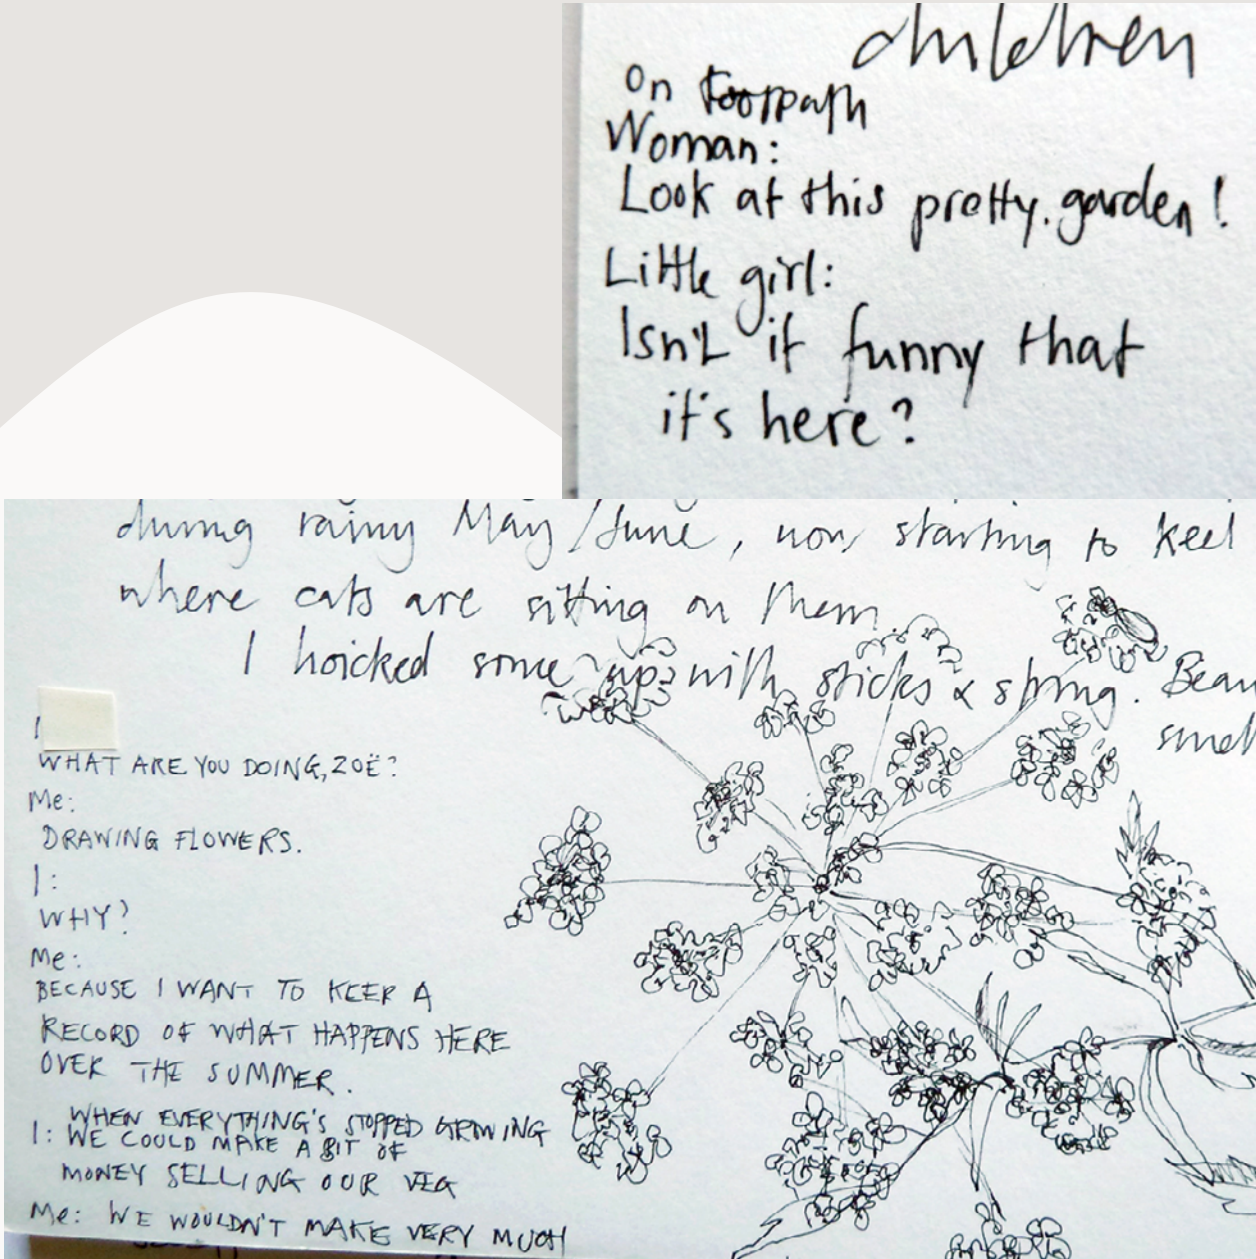 children
on footpath
Woman:
Look at this pretty garden!
Little girl:
Isn't it funny that
it's here?
during rainy May/June, now starting to keel
where cats are sitting on them.
I hoicked some up with sticks & string. Bean
smell
WHAT ARE YOU DOING, ZOË?
Me:
DRAWING FLOWERS.
I:
WHY?
Me:
BECAUSE I WANT TO KEEP A
RECORD OF WHAT HAPPENS HERE
OVER THE SUMMER.
WHEN EVERYTHING'S STOPPED GROWING
I: WE COULD MAKE A BIT OF
MONEY SELLING OUR VEG
Me: WE WOULDN'T MAKE VERY MUCH